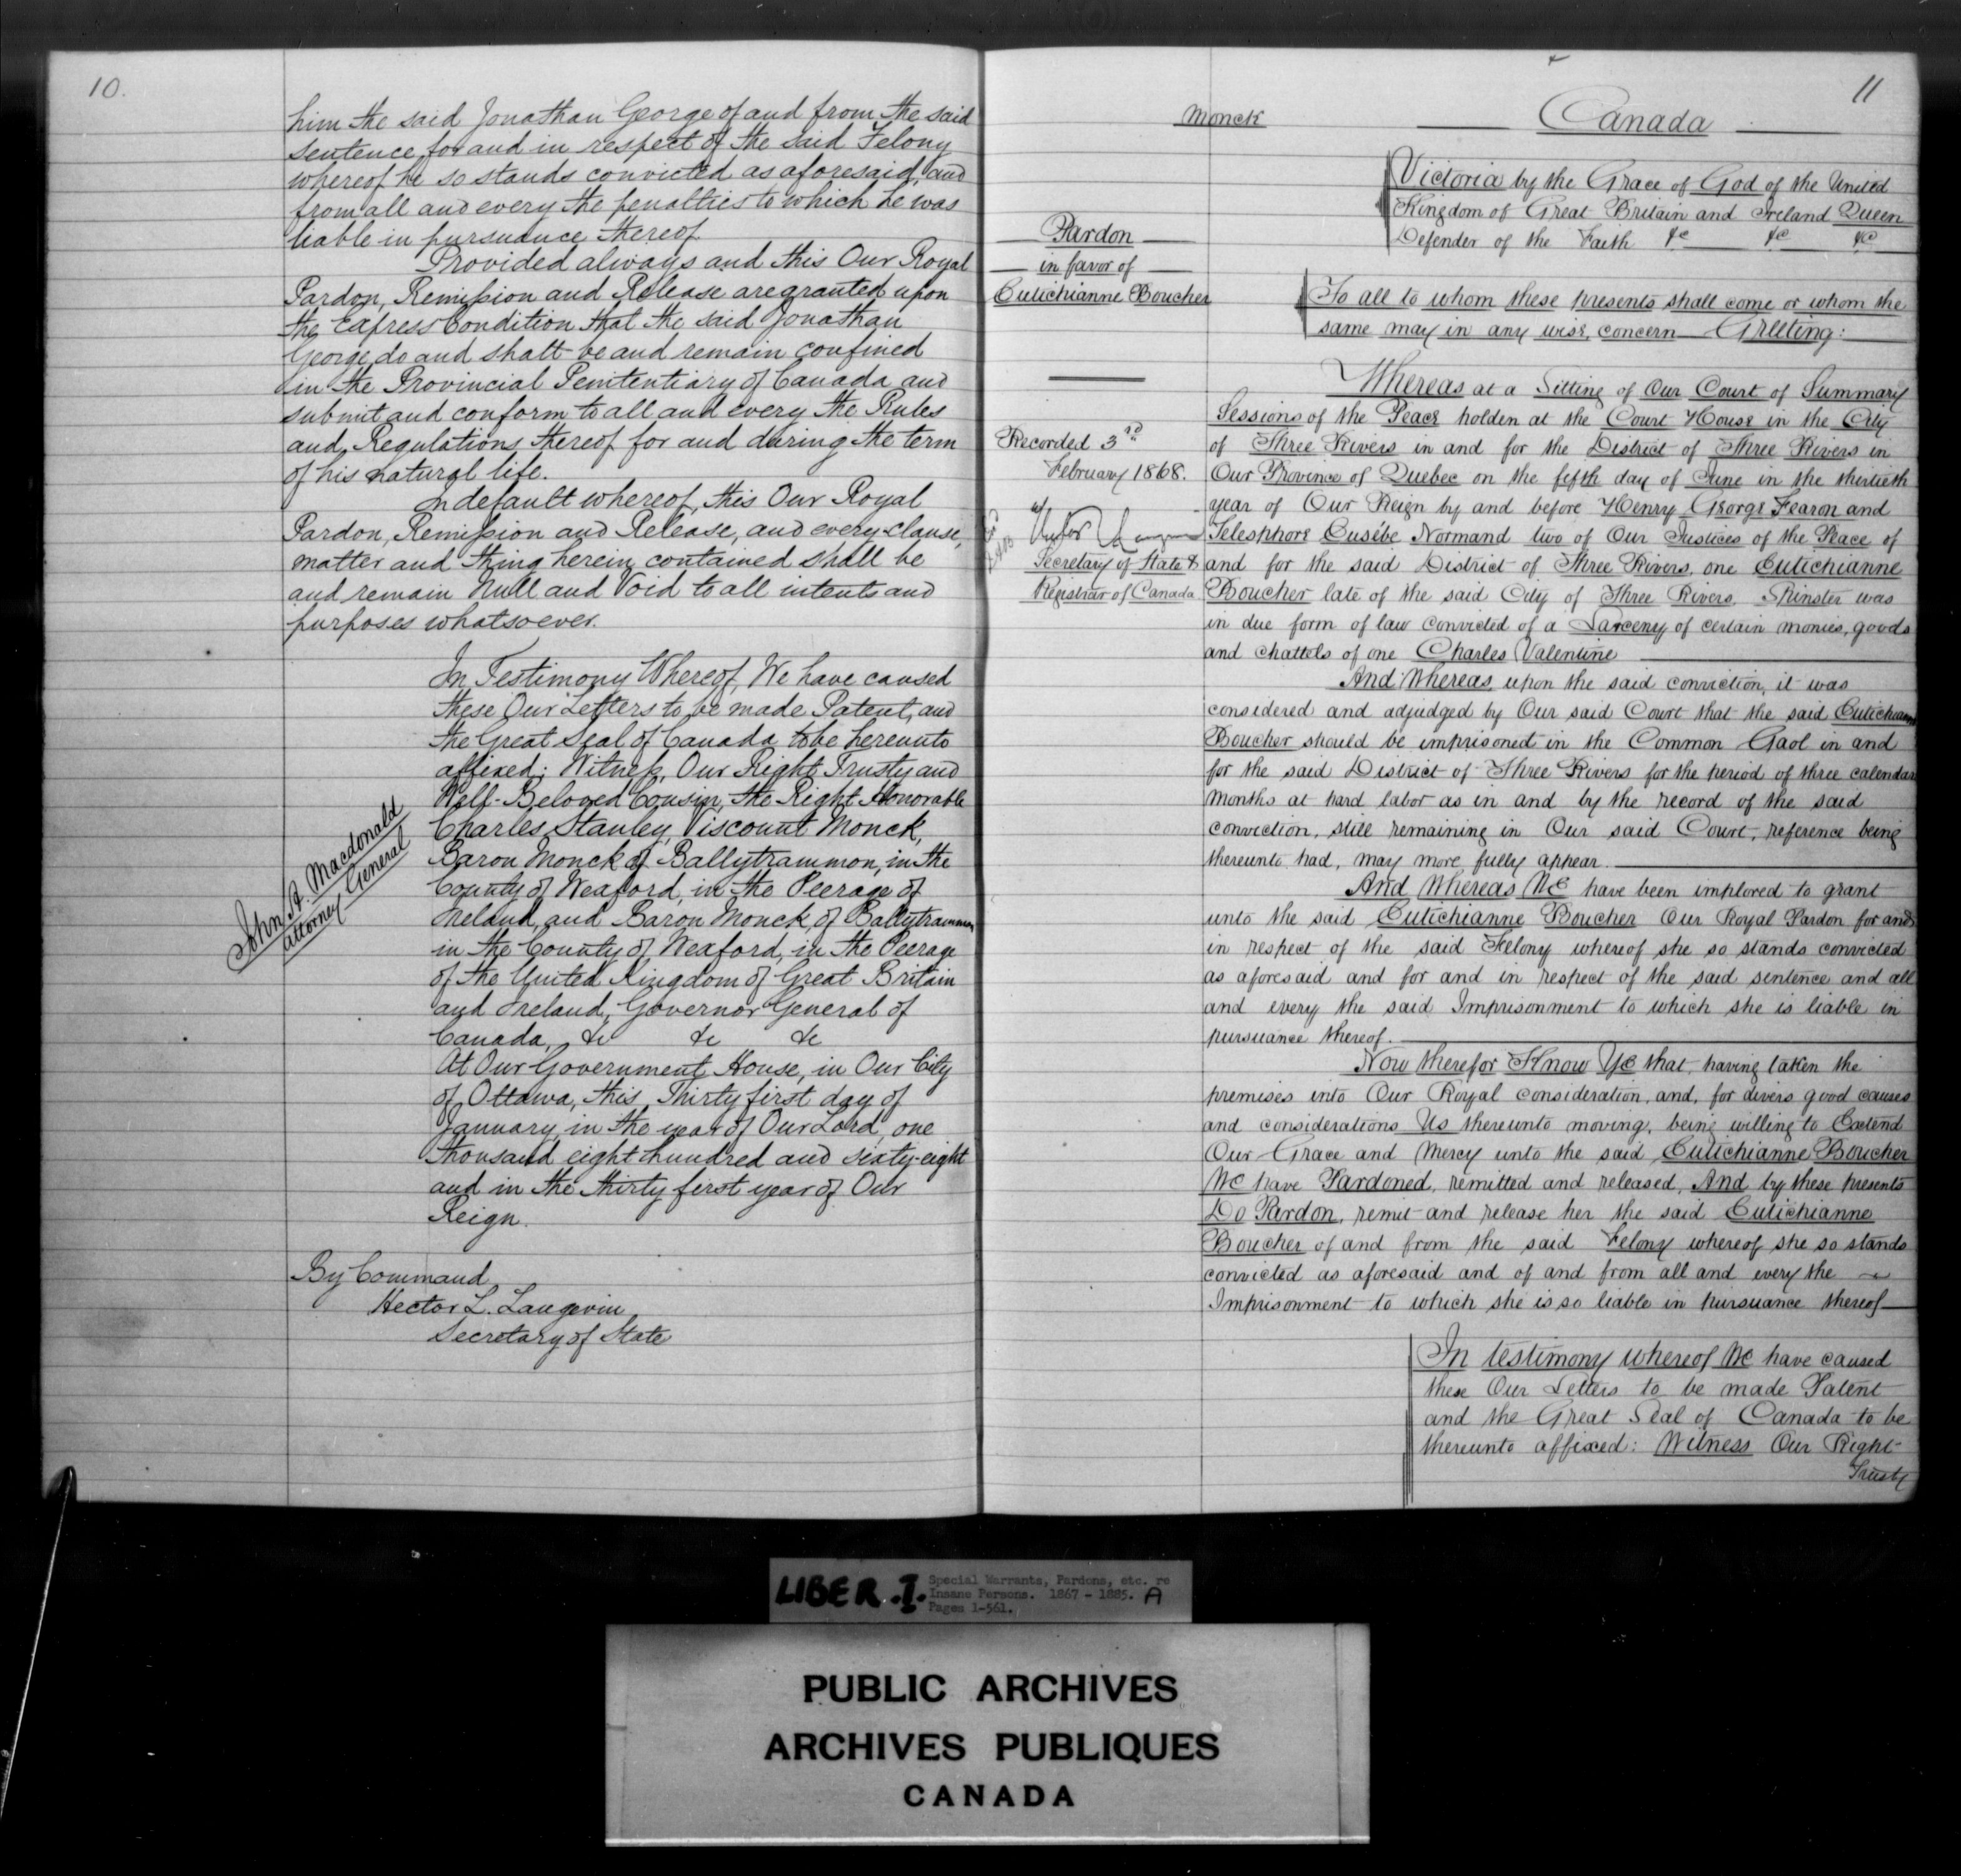 10.
him the said Jonathan George of and from the said
sentence, for and in respect of the said Felony
whereof he so stands convicted as aforesaid, and
from all and every the penalties to which he was
liable in pursuance thereof.
Provided always and this Our Royal
Pardon, Remission and Release are granted upon
the Express Condition that the said Jonathan
George, do and shall be and remain confined
in the Provincial Penitentiary of Canada and
submit and conform to all and every the Rules
and Regulations thereof for and during the term
of his natural life.
In default whereof, this Our Royal
Pardon, Remission and Release, and every clause,
matter and thing herein contained shall be
and remain Null and Void to all intents and
purposes whatsoever.
In Testimony Whereof, We have caused
these Our Letters to be made Patent, and
the Great Seal of Canada to be hereunto
affixed; Witness, Our Right Trusty and
Well-Beloved Cousin, the Right Honorable
Charles Stanley, Viscount Monck,
Baron Monck of Ballytrammon, in the
County of Wexford, in the Peerage of
Ireland, and Baron Monck, of Ballytrammon
in the County of Wexford, in the Peerage
of the United Kingdom of Great Britain
and Ireland, Governor General of
Canada, &c &c &c
At Our Government House, in Our City
of Ottawa, this Thirty first day of
January, in the year of Our Lord, one
thousand eight hundred and sixty-eight
and in the thirty first year of Our
Reign.
John A. Macdonald
Attorney General
By Command
Hector L. Langevin
Secretary of State
11
Monck
Canada
Pardon
in favor of
Eutichianne Boucher
Recorded 3rd
February 1868.
Secretary of State &
Registrar of Canada
Victoria by the Grace of God of the United
Kingdom of Great Britain and Ireland Queen
Defender of the Faith &c &c &c
To all to whom these presents shall come or whom the
same may in any wise, concern Greeting:
Whereas at a Sitting of Our Court of Summary
Sessions of the Peace holden at the Court House in the City
of Three Rivers in and for the District of Three Rivers in
Our Province of Quebec on the fifth day of June in the thirtieth
year of Our Reign by and before Henry George Fearon and
Telesphore Eusébe Normand two of Our Justices of the Peace of
and for the said District of Three Rivers, one Eutichianne
Boucher late of the said City of Three Rivers, Spinster was
in due form of law convicted of a Larceny of certain monies, goods
and chattels of one Charles Valentine
And Whereas upon the said conviction, it was
considered and adjudged by Our said Court that the said Eutichianne
Boucher should be imprisoned in the Common Gaol in and
for the said District of Three Rivers for the period of three calendar
months at hard labor as in and by the record of the said
conviction, still remaining in Our said Court, reference being
thereunto had, may more fully appear.
And Whereas We have been implored to grant
unto the said Eutichianne Boucher Our Royal Pardon for and
in respect of the said Felony whereof she so stands convicted
as aforesaid and for and in respect of the said sentence and all
and every the said Imprisonment to which she is liable in
pursuance thereof.
Now therefor Know Ye that, having taken the
premises into Our Royal consideration, and, for divers good causes
and considerations Us thereunto moving, being willing to Extend
Our Grace and Mercy unto the said Eutichianne Boucher
We have Pardoned, remitted and released, And by these presents
Do Pardon, remit and release her the said Eutichianne
Boucher of and from the said Felony whereof she so stands
convicted as aforesaid and of and from all and every the
Imprisonment to which she is so liable in pursuance thereof
In testimony whereof We have caused
these Our Letters to be made Patent
and the Great Seal of Canada to be
thereunto affixed: Witness Our Right
Trusty
LIBER.I. Special Warrants, Pardons, etc. re
Insane Persons. 1867 - 1885. A
Pages 1-561.
PUBLIC ARCHIVES
ARCHIVES PUBLIQUES
CANADA